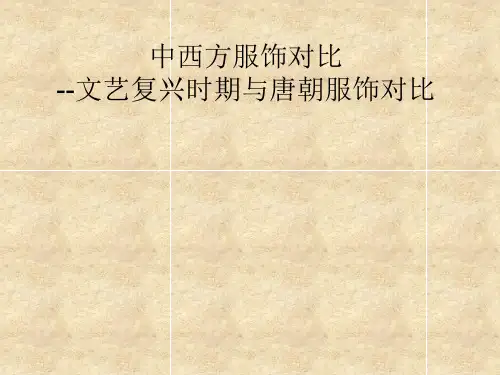 中西方服饰对比
--文艺复兴时期与唐朝服饰对比